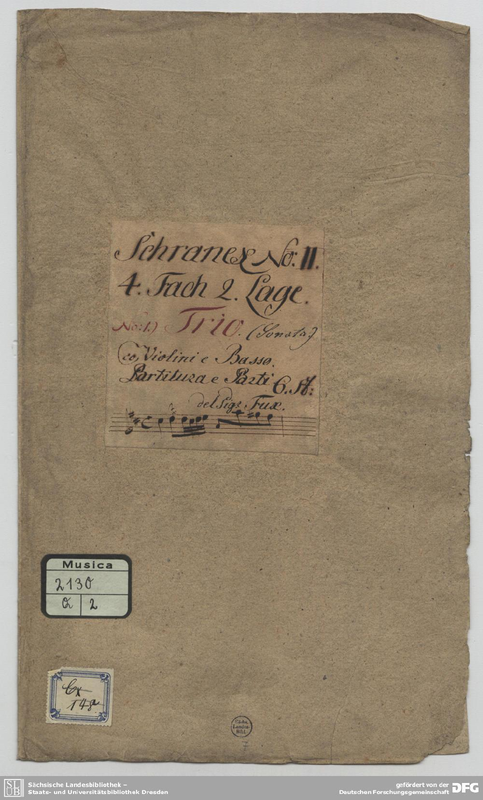 Schranck No: II.
4. Fach 2. Lage.
No: 1.) Trio. (Sonata)
co Violini e Basso.
Partitura e Parti 6. St:
del Sigr. Fux.
Musica
2130
Q 2
Cx
148a
Sächs.
Landes-
Bibl.
Sächsische Landesbibliothek –
Staats- und Universitätsbibliothek Dresden
gefördert von der
Deutschen Forschungsgemeinschaft DFG